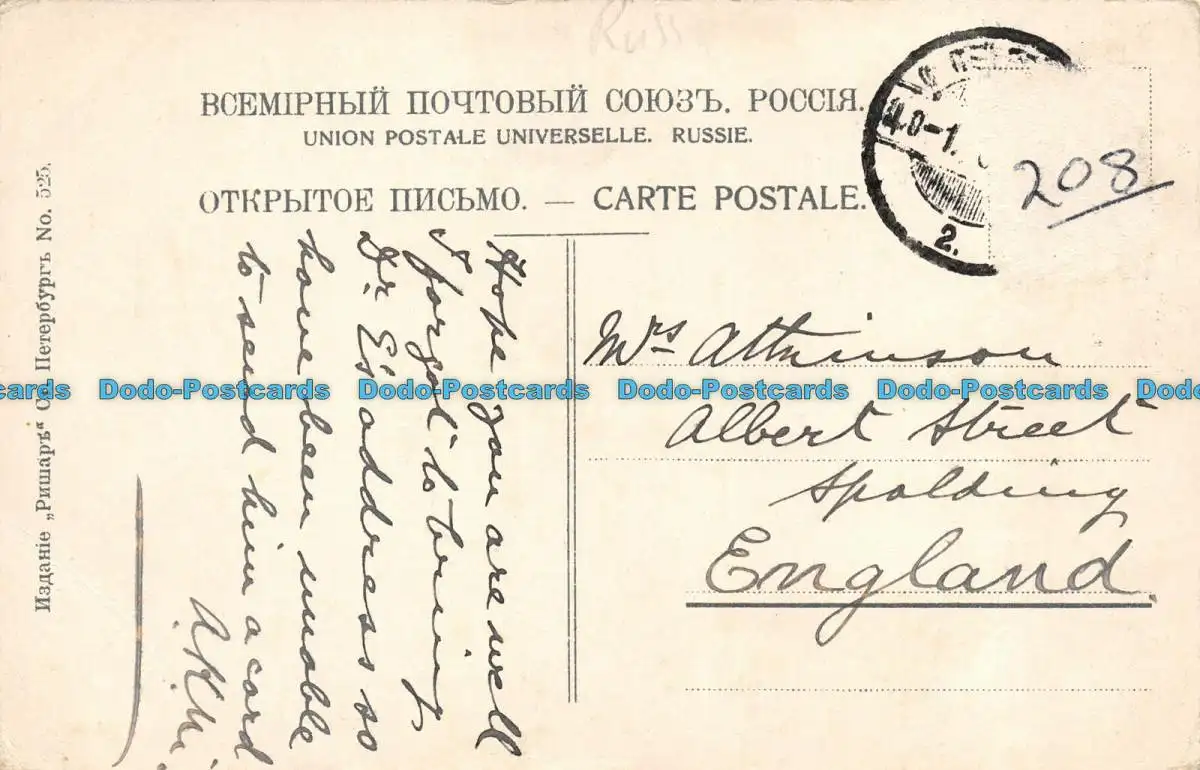 Russ
ВСЕМІРНЫЙ ПОЧТОВЫЙ СОЮЗЪ. РОССІЯ.
UNION POSTALE UNIVERSELLE. RUSSIE.
ОТКРЫТОЕ ПИСЬМО. — CARTE POSTALE.
0-1.
2.
208
Издание „Ришаръ“ Петербургъ No. 525.
Hope you are well
I forgot to bring
Dr. E's address so
have been unable
to send him a card
Mrs Attkinson
Albert Street
Spalding
England
Dodo-Postcards Dodo-Postcards Dodo-Postcards Dodo-Postcards